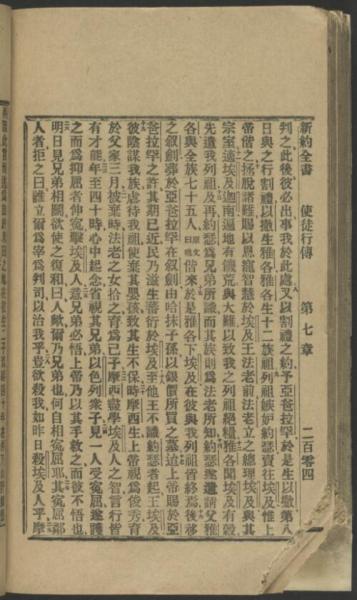 新約全書　使徒行傳　第七章　二百零四
判之此後彼必出事我於此處又以割禮之約予亞爸拉罕於是生以撒第八
日與之行割禮以撒生雅各雅各生十二族祖列祖嫉妒約瑟賣往埃及惟上
帝偕之拯脫諸難賜以恩寵智慧於埃及王法老前法老立之總理埃及與其
宗室適埃及迦南遍地有饑荒與大難以致我之列祖絕糧雅各聞埃及有穀
先遣我列祖及再約瑟為兄弟所識而其族則為法老所知約瑟遂遣請父雅
各與全族七十五人偕來於是雅各下埃及在彼與我列祖皆終焉後移
之叙劍葬於亞爸拉罕在叙劍由哈抹子孫以銀價所買之墓迨上帝賜於亞
爸拉罕之許其期已近民乃滋生蕃衍於埃及至他王不識約瑟者起王埃及
彼陰謀我族虐待我祖使棄其嬰孩致其生不保時摩西生上帝視為俊秀育
於父家三月被棄時法老之女拾之育爲己子摩西職學埃及人之智言行皆
有才能年至四十時心中起念省視其兄弟以色列衆子見一人受寃屈遂護
之而爲抑屈者伸寃擊埃及人意兄弟必悟上帝乃以其手救之而彼不悟也
明日見兄弟相鬭欲使之復和曰人歟爾乃兄弟也何自相寃屈耶其寃屈鄰
人者拒之曰誰立爾爲宰爲判司以治我乎豈欲殺我如昨日殺埃及人乎摩